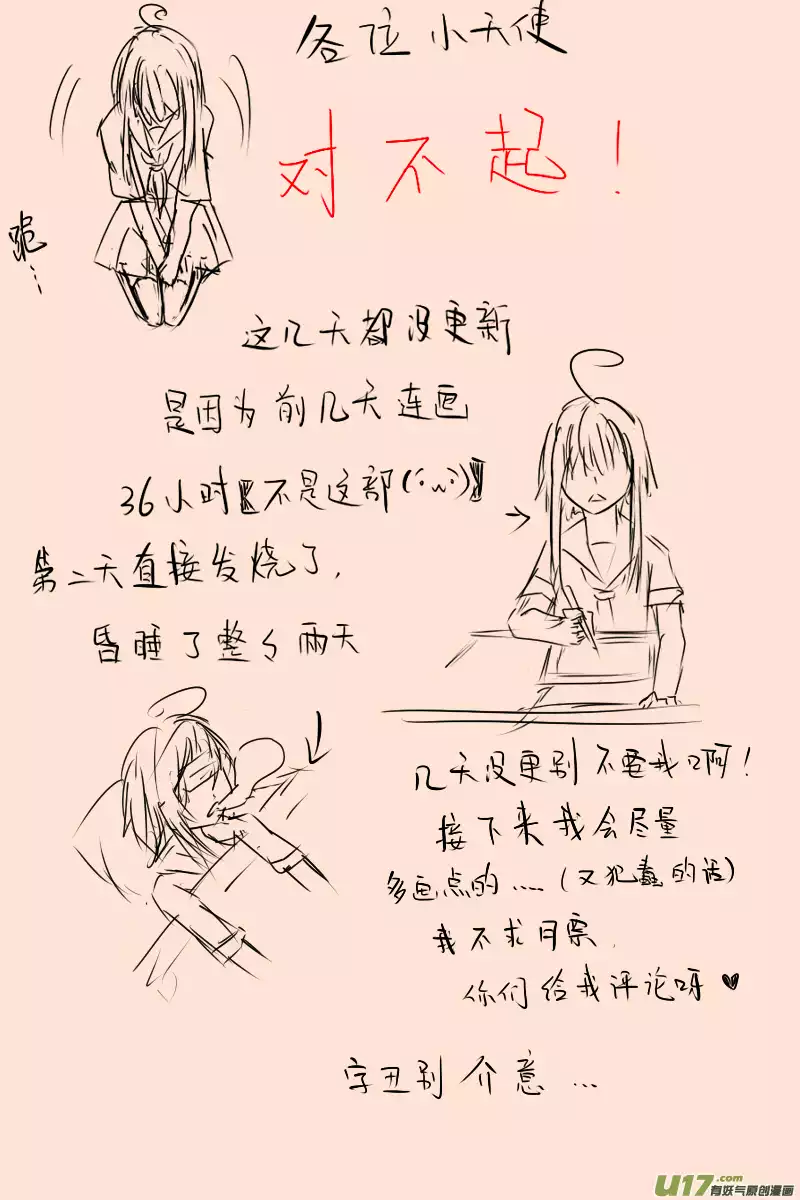 各位小天使
对不起！
跪…
这几天都没更新
是因为前几天连画
36小时【不是这部(´・ω・`)】
第二天直接发烧了，
昏睡了整々两天
几天没更别不要我啊！
接下来我会尽量
多画点的……（又犯蠢的话）
我不求月票，
你们给我评论呀♥
字丑别介意…
U17.com
有妖气原创漫画